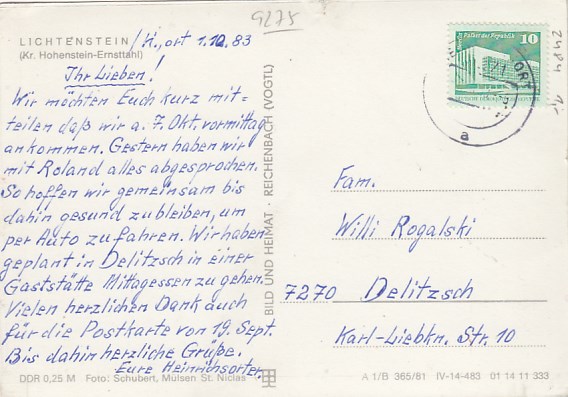 9275
LICHTENSTEIN
(Kr. Hohenstein-Ernstthal)
H., ort 1.10.83
Ihr Lieben!
Wir möchten Euch kurz mit=
teilen daß wir a. 7. Okt. vormittag
ankommen. Gestern haben wir
mit Roland alles abgesprochen.
So hoffen wir gemeinsam bis
dahin gesund zu bleiben, um
per Auto zu fahren. Wir haben
geplant in Delitzsch in einer
Gaststätte Mittagessen zu gehen.
Vielen herzlichen Dank auch
für die Postkarte von 19. Sept.
Bis dahin herzliche Grüße.
Eure Heinrichsorter.
DDR 0,25 M Foto: Schubert, Mülsen St. Niclas
BILD UND HEIMAT · REICHENBACH (VOGTL)
Palast der Republik
10
a
Fam.
Willi Rogalski
7270 Delitzsch
Karl-Liebkn. Str. 10
A 1/B 365/81 IV-14-483 01 14 11 333